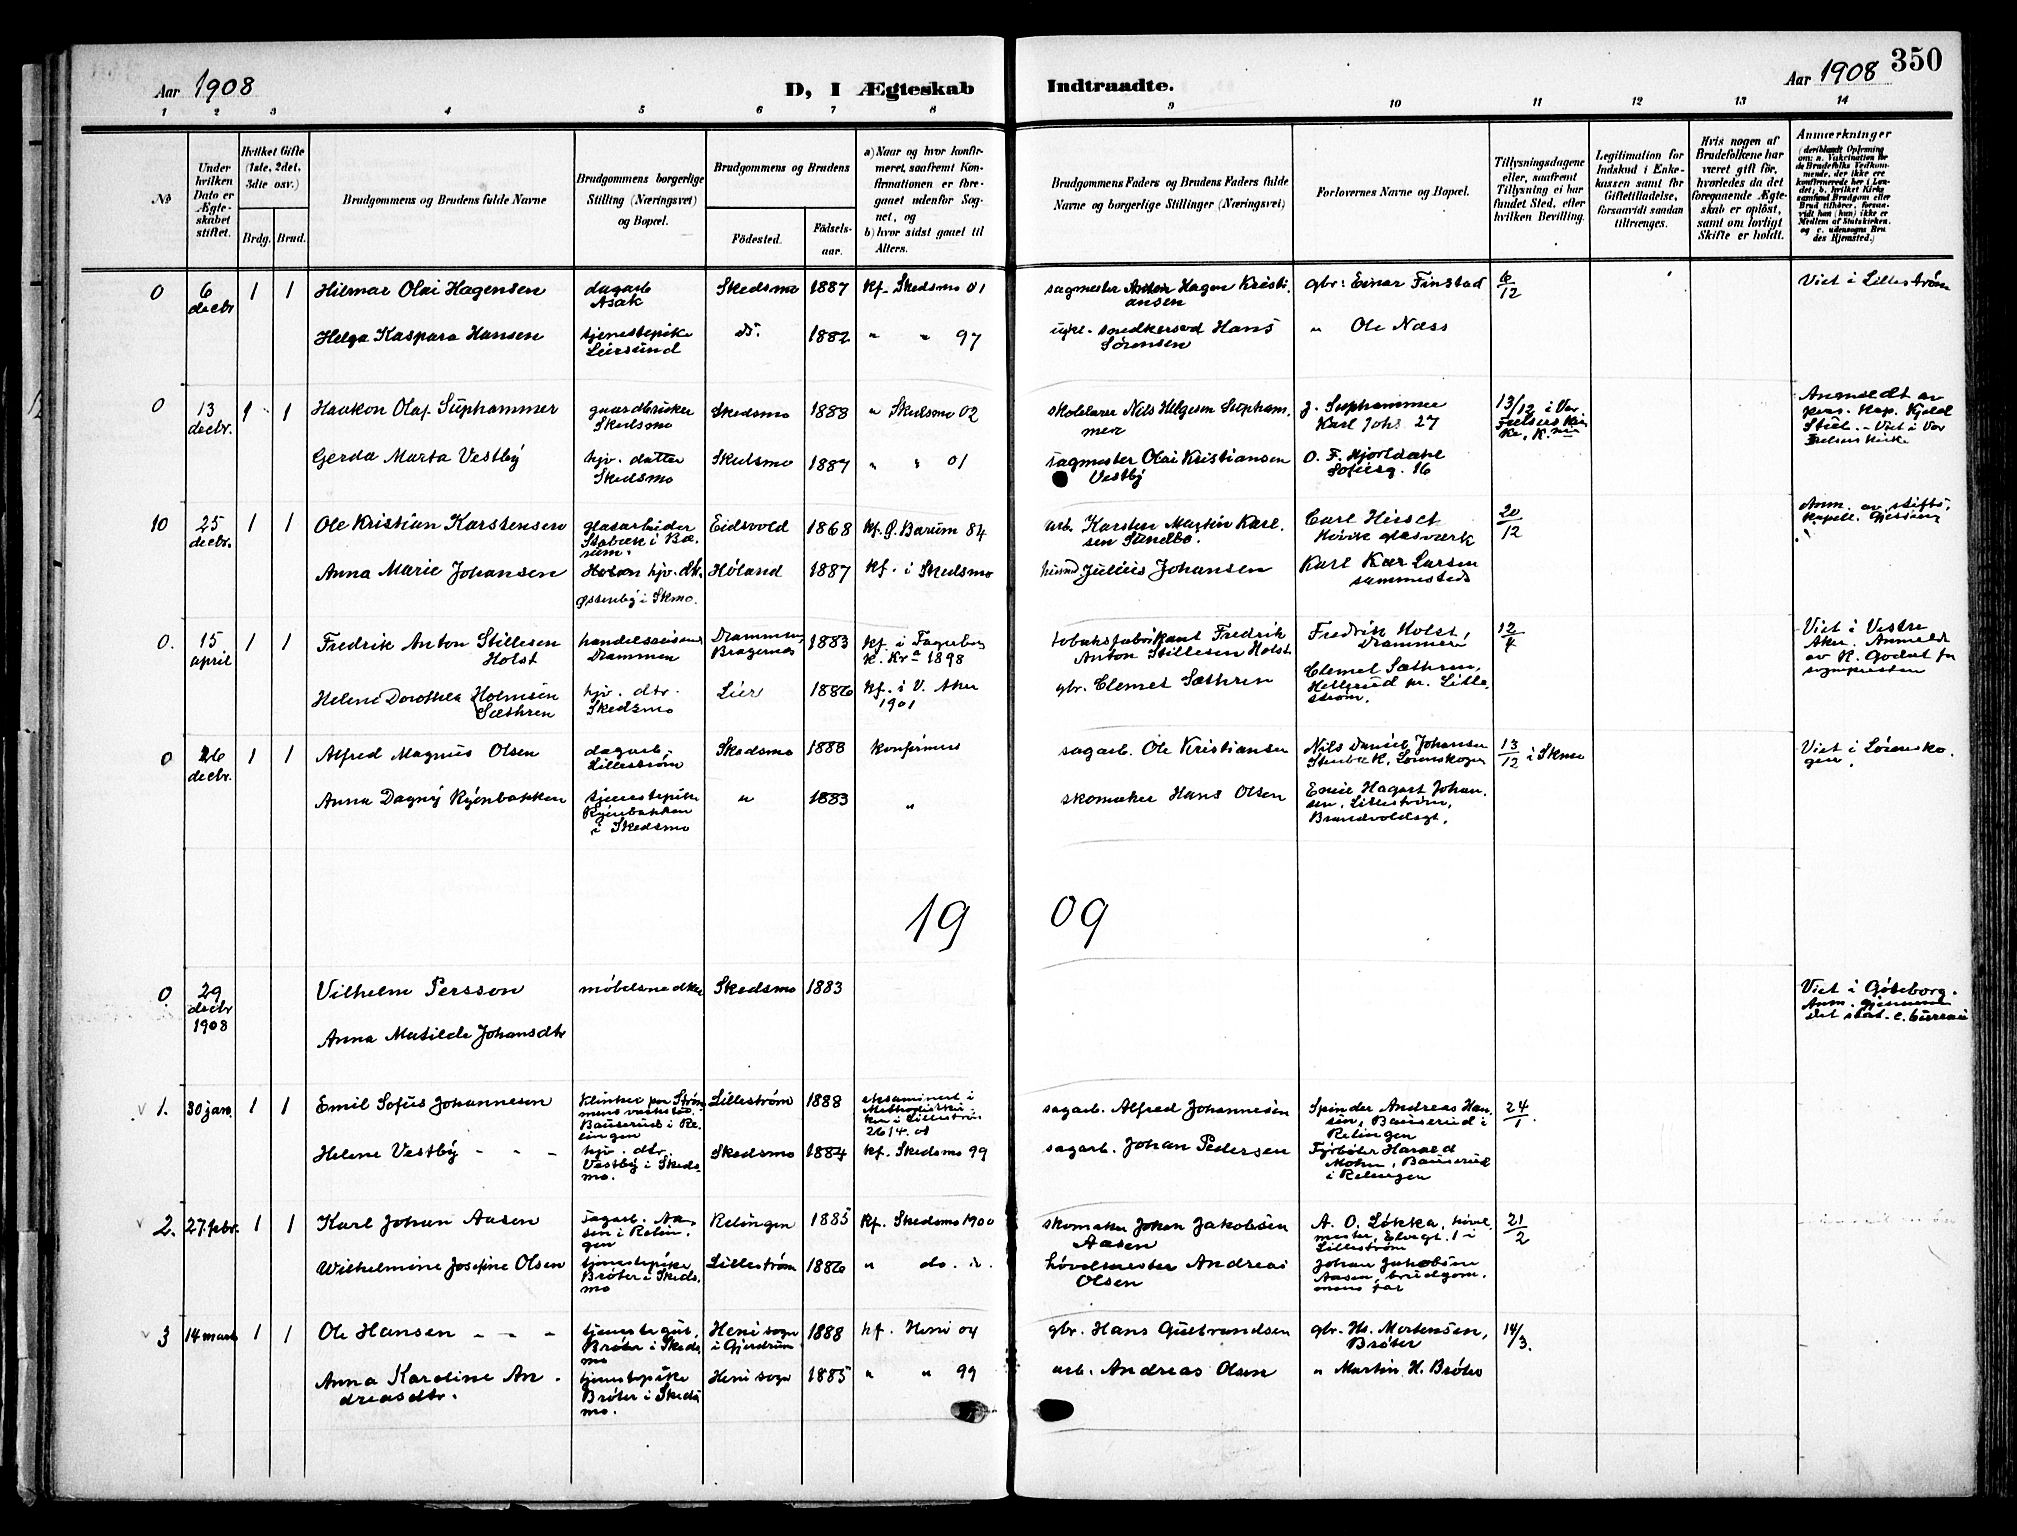 Aar 1908
D, I Ægteskab Indtraadte.
Aar 1908 350
1 2 3 4 5 6 7 8 9 10 11 12 13 14
No
Under hvilken Dato er Ægteskabet stiftet.
Hvilket Gifte (1ste, 2det, 3die osv.)
Brdg. Brud.
Brudgommens og Brudens fulde Navne
Brudgommens borgerlige Stilling (Næringsvei) og Bopæl.
Brudgommens og Brudens
Fødested.
Fødselsaar.
a) Naar og hvor konfirmeret, saafremt Konfirmationen er foregaaet udenfor Sognet, og
b) hvor sidst gaaet til Alters.
Brudgommens Faders og Brudens Faders fulde Navne og borgerlige Stillinger (Næringsvei)
Forlovernes Navne og Bopæl.
Tillysningsdagene eller, saafremt Tillysning ei har fundet Sted, efter hvilken Bevilling.
Legitimation for Indskud i Enkekassen samt for Giftetilladelse, forsaavidt saadan tiltrænges.
Hvis nogen af Brudefolkene har været gift før, hvorledes da det foregaaende Ægteskab er opløst, samt om lovligt Skifte er holdt.
Anmærkninger
(deriblandt Oplysning om: a. Vakcination for de Brudefolks Vedkommende, der ikke ere konfirmerede her i Landet; b. hvilket Kirkesamfund Brudgom eller Brud tilhører, forsaavidt han (hun) ikke er Medlem af Statskirken, og c. udensogns Brudes Hjemsted.)
0 6 decbr 1 1 Hilmar Olai Hagensen dagarb Asak Skedsmo 1887 kf. Skedsmo 01 sagmester Anton Hagen Kristiansen gbr: Einar Finstad 6/12 Viet i Lillestrøm
Helga Kaspara Hansen tjenestepike Leirsund do. 1882 " " 97 Hans Sørensen " Ole Næss
0 13 decbr. 1 1 Haakon Olaf Suphammer gaardbruker Skedsmo Skedsmo 1888 " Skedsmo 02 skolelærer Nils Helgesen Suphammer J. Suphammer Karl Johs 27 13/12 i Vor Frelsers Kirke, K.nia Anmeldt av pers. kap. Kjeld Stub. - Viet i Vor Frelsers Kirke
Gerda Marta Vestby hjv. datter Skedsmo Skedsmo 1887 " " 01 sagmester Olai Kristiansen Vestby O. F. Hjortdahl Sofiesg. 16
10 25 decbr. 1 1 Ole Kristian Karstensen glasarbeider Stabæk i Bærum. Eidsvold 1868 kf. Ø. Bærum 84 arb. Karsten Martin Karlsen Sundbo. Carl Hirsct Høvik glasværk 20/12 Anm. av stifts. kapell. Gjessing
Anna Marie Johansen hjv. dtr. Østenby i Skmo. Høland 1887 kf. i Skedsmo Julius Johansen Karl Kær Larsen sammesteds
0. 15 april 1 1 Fredrik Anton Stillesen Holst handelsreisende Drammen Drammen, Bragernes 1883 kf. i Fagerborg k. Kr.a 1898 tobaksfabrikant Fredrik Anton Stillesen Holst Fredrik Holst, Drammen 12/4 Viet i Vestre Aker. Anmeldt av R. Godal for sognepresten
Helene Dorothea Holmsen Sæthren hjv. dtr. Skedsmo Lier 1886 kf. i V. Aker 1901 gbr. Clemet Sæthren Clemet Sæthren, Hellerud pr. Lillestrøm.
0 26 decbr. 1 1 Alfred Magnus Olsen dagarb. Lillestrøm Skedsmo 1888 konfirmert sagarb. Ole Kristiansen Nils Daniel Johansen Stubæk, Lørenskogen 13/12 i Skmo Viet i Lørenskogen.
Anna Dagny Ryenbakken tjenestepike Ryenbakken i Skedsmo " 1883 " skomaker Hans Olsen Emil Hagart Johansen, Lillestrøm, Brandvoldsgt.
19 09
0. 29 decbr 1908 Vilhelm Persson møbelsnedker Skedsmo 1883 Viet i Gøteborg. Anm. gjennem det stat. c. bureau
Anna Matilde Johansdtr
1. 30 jan. 1 1 Emil Sofus Johannesen Klinker paa Strømmens værksted. Bauserud i Relingen Lillestrøm 1888 eksaminert i Methodistkirken i Lillestrøm 26/4.03 sagarb. Alfred Johannesen Spinder Andreas Hansen, Bauserud i Relingen 24/1.
Helene Vestby - - - hjv. dtr. Vestby i Skedsmo. Skedsmo 1884 kf. Skedsmo 99 sagarb. Johan Pedersen Fyrbøter Harald Mohn, Bauserud i Relingen
2. 27. febr. 1 1 Karl Johan Aasen sagarb. Aasen i Relingen Relingen 1885 kf. Skedsmo 1900 skomaker Johan Jakobsen Aasen A. O. Løkka, høvelmester, Elvegt. 1 i Lillestrøm 21/2
Wilhelmine Josefine Olsen tjenestepike Brøter i Skedsmo Lillestrøm 1886 " do. høvelmester Andreas Olsen Johan Jakobsen Aasen, brudgommens far
3 14 mars 1 1 Ole Hansen - - - tjenestegut, Brøter i Skedsmo Heni sogn i Gjerdrum 1888 kf. Heni 04 gbr. Hans Gulbrandsen gbr. Hs. Mortensen, Brøter 14/3.
Anna Karoline Andreasdtr. tjenestepike Brøter i Skedsmo. Heni sogn 1885 " " 99 arb. Andreas Olsen " Martin H. Brøter